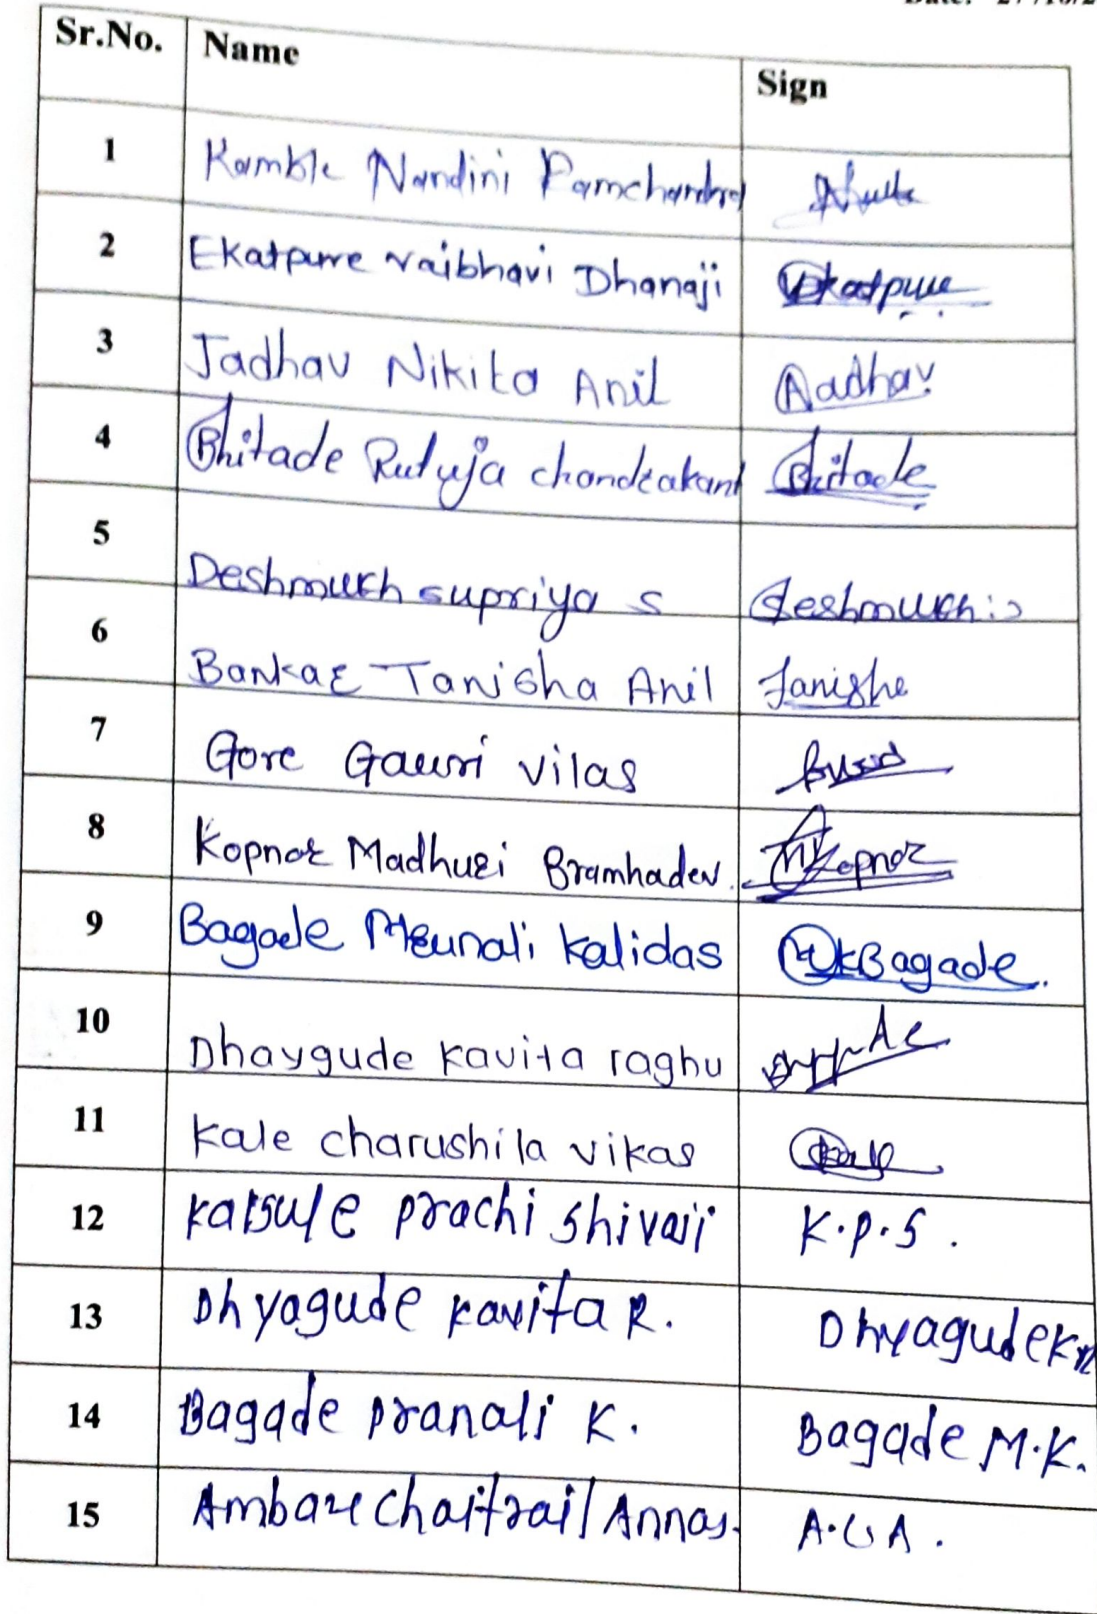 Sr.No. Name Sign
1 Kamble Nandini Ramchandra
2 Ekatpure vaibhavi Dhanaji Ekatpure
3 Jadhav Nikita Anil Jadhav
4 Bhitade Rutuja chandrakant Bhitade
5 Deshmukh supriya s Deshmukh
6 Bankar Tanisha Anil Tanisha
7 Gore Gauri vilas
8 Kopnar Madhuri Bramhadev. Kopnar
9 Bagade Mrunali Kalidas MKBagade.
10 Dhaygude kavita raghu
11 kale charushila vikas
12 katsule prachi shivaji K.P.S.
13 Dhyagude kavita R. Dhyagude
14 Bagade pranali K. Bagade M.K.
15 Ambare Chaitrail Annas. A.C.A.